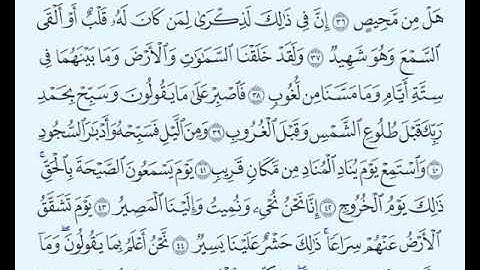 هَلْ مِن مَّحِيصٍ ٣٦ إِنَّ فِى ذَٰلِكَ لَذِكْرَىٰ لِمَن كَانَ لَهُۥ قَلْبٌ أَوْ أَلْقَى
ٱلسَّمْعَ وَهُوَ شَهِيدٌ ٣٧ وَلَقَدْ خَلَقْنَا ٱلسَّمَٰوَٰتِ وَٱلْأَرْضَ وَمَا بَيْنَهُمَا فِى
سِتَّةِ أَيَّامٍ وَمَا مَسَّنَا مِن لُّغُوبٍ ٣٨ فَٱصْبِرْ عَلَىٰ مَا يَقُولُونَ وَسَبِّحْ بِحَمْدِ
رَبِّكَ قَبْلَ طُلُوعِ ٱلشَّمْسِ وَقَبْلَ ٱلْغُرُوبِ ٣٩ وَمِنَ ٱلَّيْلِ فَسَبِّحْهُ وَأَدْبَٰرَ ٱلسُّجُودِ
٤٠ وَٱسْتَمِعْ يَوْمَ يُنَادِ ٱلْمُنَادِ مِن مَّكَانٍ قَرِيبٍ ٤١ يَوْمَ يَسْمَعُونَ ٱلصَّيْحَةَ بِٱلْحَقِّ ۚ
ذَٰلِكَ يَوْمُ ٱلْخُرُوجِ ٤٢ إِنَّا نَحْنُ نُحْىِۦ وَنُمِيتُ وَإِلَيْنَا ٱلْمَصِيرُ ٤٣ يَوْمَ تَشَقَّقُ
ٱلْأَرْضُ عَنْهُمْ سِرَاعًا ۚ ذَٰلِكَ حَشْرٌ عَلَيْنَا يَسِيرٌ ٤٤ نَّحْنُ أَعْلَمُ بِمَا يَقُولُونَ ۖ وَمَآ